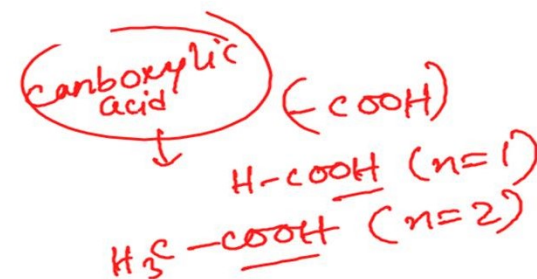 Carboxylic
acid
(-COOH)
H-COOH (n=1)
H₃C-COOH (n=2)